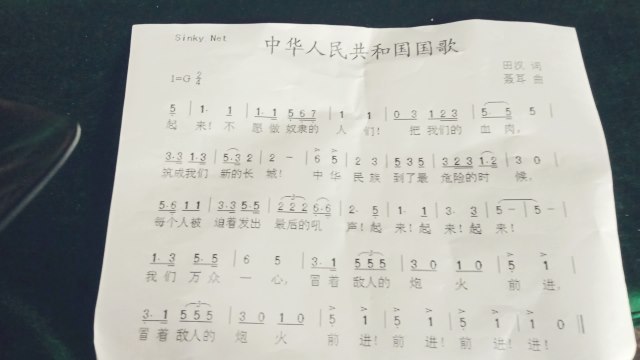 Sinky.Net
中华人民共和国国歌
1=G 2/4
田汉 词
聂耳 曲
5 | 1. 1 | 1.1 567 | 1 1 | 03 123 | 5 5
起 来! 不 愿做 奴隶的 人 们! 把 我们的 血 肉,
3.3 1.3 | 5.3 2 | 2 - | 6 5 | 2 3 | 53 05 | 323 12 | 3 0
筑成我们 新的长 城! 中 华 民 族 到了 最 危险的时 候,
5.6 11 | 3.3 55 | 222 66 | 2. 5 | 1. 1 | 3. 3 | 5 - | 5 -
每个人被 迫着发出 最后的吼 声! 起 来! 起 来! 起 来!
1. 3 5. 5 | 6 5 | 3. 1 555 | 30 10 | 5 1
我 们 万 众 一 心, 冒 着 敌人的 炮 火 前 进,
3. 1 555 | 30 10 | 5 1 | 5 1 | 5 1 | 1 0
冒 着 敌人的 炮 火 前 进! 前 进! 前 进! 进!